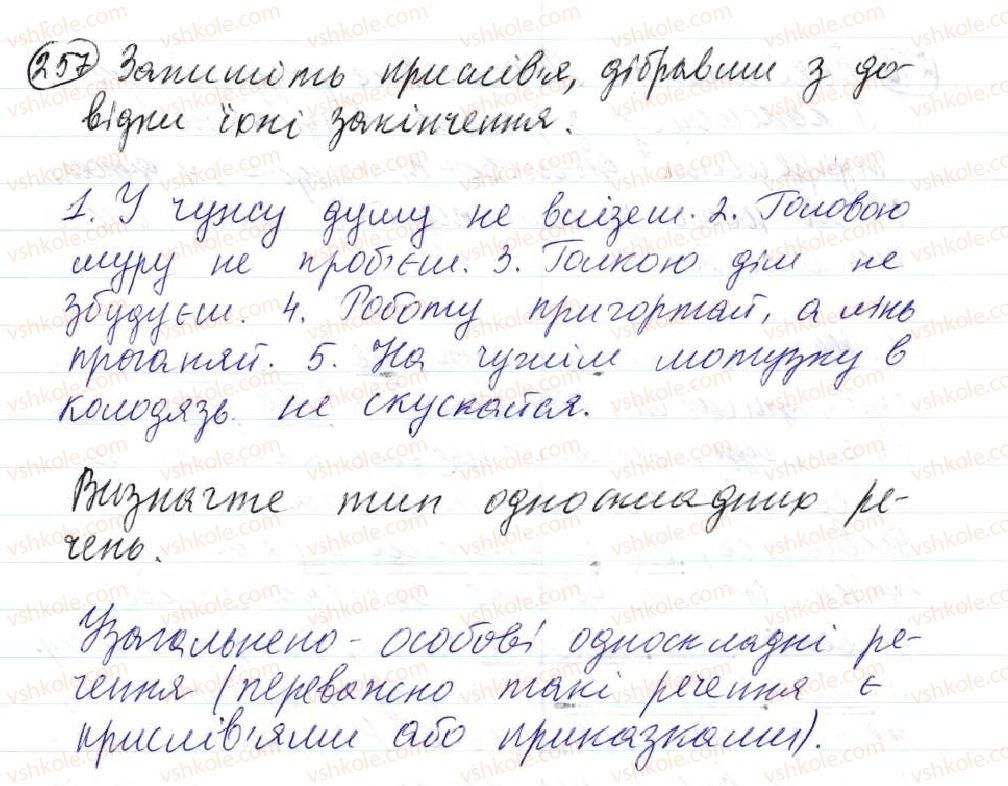 257 Запишіть прислів'я, дібравши з до-
відки їхні закінчення.
1. У чужу душу не влізеш. 2. Головою
муру не проб'єш. 3. Голкою дім не
збудуєш. 4. Роботу пригортай, а лінь
проганяй. 5. На чужім мотузку в
колодязь не скускайся.
Визначте тип односкладних ре-
чень.
Узагальнено-особові односкладні ре-
чення (переважно такі речення є
прислів'ями або приказками).